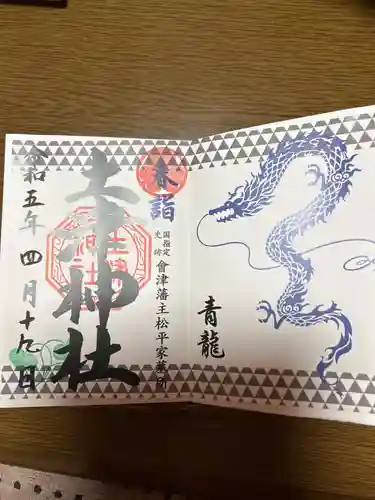 奉詣
国指定
史跡
會津藩主松平家墓所
土津神社
令和五年四月十九日
青龍